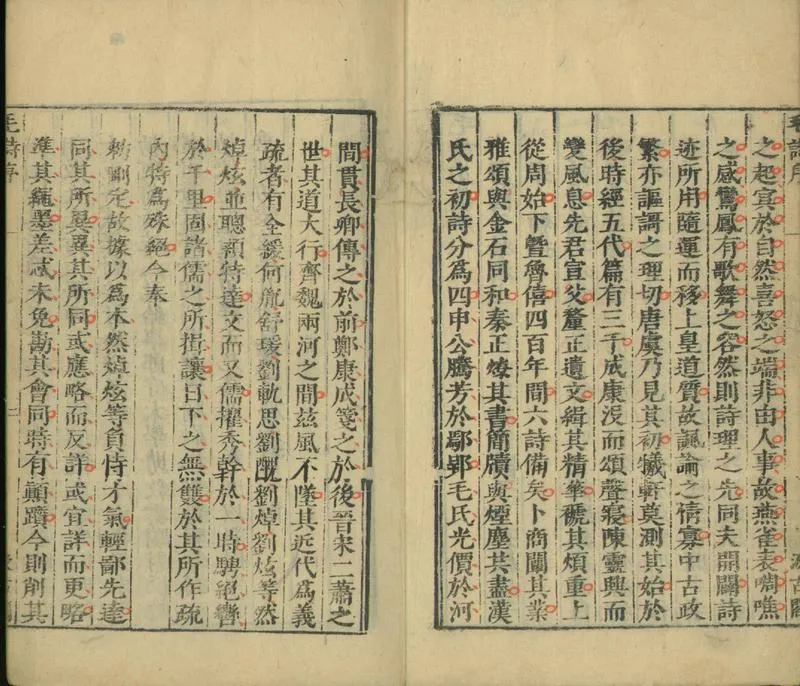 毛詩序
汲古閣
之起宜於自然喜怒之端非由人事故燕雀表啁噍
之感鸞鳳有歌舞之容然則詩理之先同夫開闢詩
迹所用隨運而移上皇道質故諷諭之情寡中古政
繁亦謳謌之理切唐虞乃見其初犧軒莫測其始於
後時經五代篇有三千成康沒而頌聲寢陳靈興而
變風息先君宣父釐正遺文緝其精華褫其煩重上
從周始下暨魯僖四百年間六詩備矣卜商闡其業
雅頌與金石同和秦正燎其書簡牘與煙塵共盡漢
氏之初詩分爲四申公騰芳於鄢郢毛氏光價於河
間貫長卿傳之於前鄭康成箋之於後晉宋二蕭之
世其道大行齊魏兩河之間茲風不墜其近代爲義
疏者有全緩何胤舒瑗劉軌思劉醜劉焯劉炫等然
焯炫並聰穎特達文而又儒擢秀幹於一時騁絕轡
於千里固諸儒之所揖讓日下之無雙於其所作疏
內特爲殊絕今奉
勑刪定故據以爲本然焯炫等負恃才氣輕鄙先達
同其所異異其所同或應略而反詳或宜詳而更略
準其繩墨差忒未免勘其會同時有顛躓今則削其
毛詩序
二